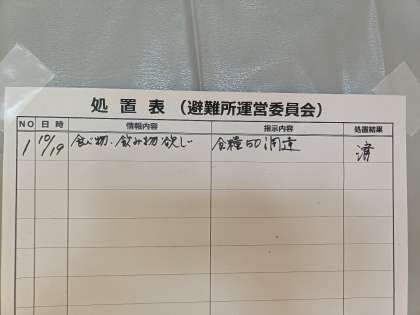 処置表（避難所運営委員会）
NO 日時 情報内容 指示内容 処置結果
1 10/19 食べ物、飲み物欲しい 食糧50調達 済